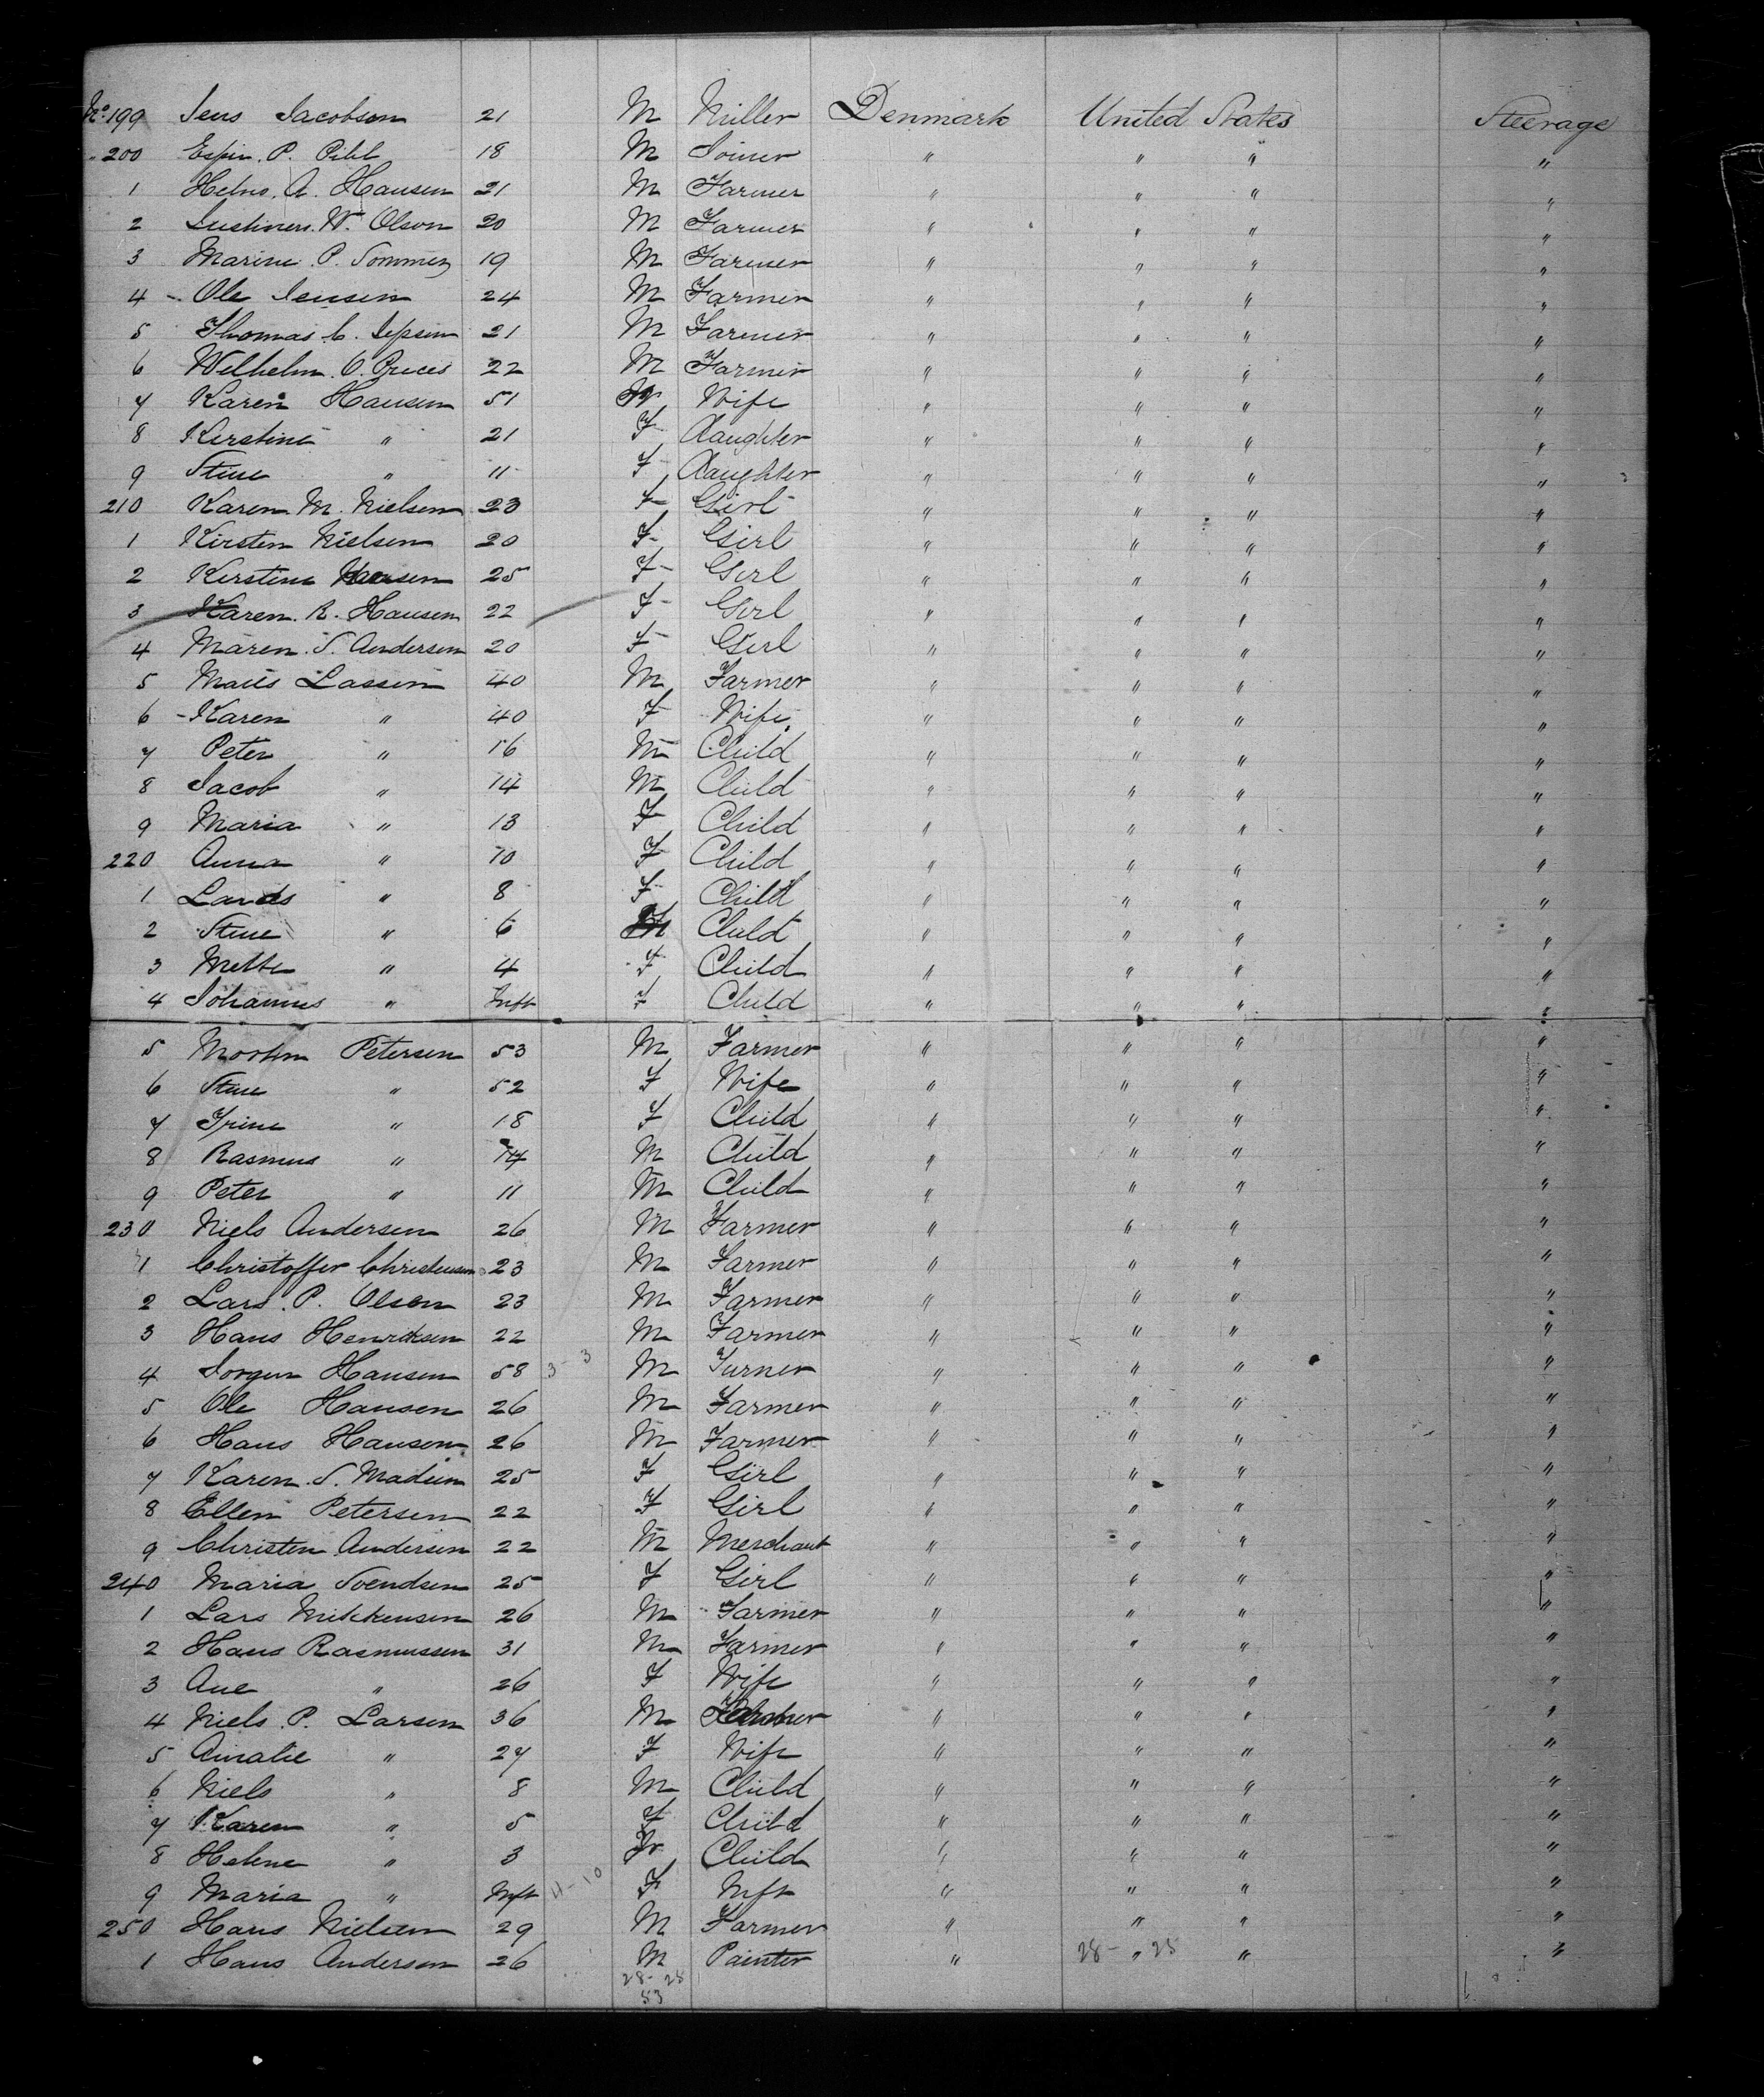 No. 199 Jens Jacobson 21 M Miller Denmark United States Steerage
" 200 Espin. P. Pihl 18 M Joiner " " " "
1 Hans. A. Hansen 21 M Farmer " " " "
2 W. Olson 20 M Farmer " " " "
3 Marine. P. Sommer 19 M Farmer " " " "
4 - Ole Jensen 24 M Farmer " " " "
5 Thomas C. Jepsen 21 M Farmer " " " "
6 Welhelm. O. 22 M Farmer " " " "
7 Karen Hansen 51 Wife " " " "
8 Kerstine " 21 F Daughter " " " "
9 Stine " 11 F Daughter " " " "
210 Karen M. Nielsen 23 F Girl " " " "
1 Kirsten Nielsen 20 F Girl " " " "
2 Kerstine 25 F Girl " " " "
3 Karen. R. Hansen 22 F Girl " " " "
4 Maren. S. Andersen 20 F Girl " " " "
5 Lassen 40 M Farmer " " " "
6 - Karen " 40 F Wife " " " "
7 Peter " 16 M Child " " " "
8 Jacob " 14 M Child " " " "
9 Maria " 13 F Child " " " "
220 Anna " 10 F Child " " " "
1 " 8 F Child " " " "
2 Stine " 6 Child " " " "
3 Mette " 4 F Child " " " "
4 Johannes " Inft F Child " " " "
5 Morten Petersen 53 M Farmer " " " "
6 Stine " 52 F Wife " " " "
7 Trine " 18 F Child " " " "
8 Rasmus " 14 M Child " " " "
9 Peter " 11 M Child " " " "
230 Niels Andersen 26 M Farmer " " " "
1 Christoffer Christensen 23 M Farmer " " " "
2 Lars. P. Olsen 23 M Farmer " " " "
3 Hans Henriksen 22 M Farmer " " " "
4 Jorgen Hansen 58 3-3 M Turner " " " "
5 Ole Hansen 26 M Farmer " " " "
6 Hans Hansen 26 M Farmer " " " "
7 Karen. S. Madsen 25 F Girl " " " "
8 Ellen Petersen 22 F Girl " " " "
9 Christen Andersen 22 M Merchant " " " "
240 Maria Svendsen 25 F Girl " " " "
1 Lars Mikkensen 26 M Farmer " " " "
2 Hans Rasmussen 31 M Farmer " " " "
3 Ane " 26 F Wife " " " "
4 Niels. P. Larsen 36 M Farmer " " " "
5 Amalie " 27 F Wife " " " "
6 Niels " 8 M Child " " " "
7 Karen " 5 F Child " " " "
8 Helene " 3 F Child " " " "
9 Maria " Inft 4-10 F Inft " " " "
250 Hans Nielsen 29 M Farmer " " " "
1 Hans Andersen 26 M Painter " 28- " 25 " "
28-28
53